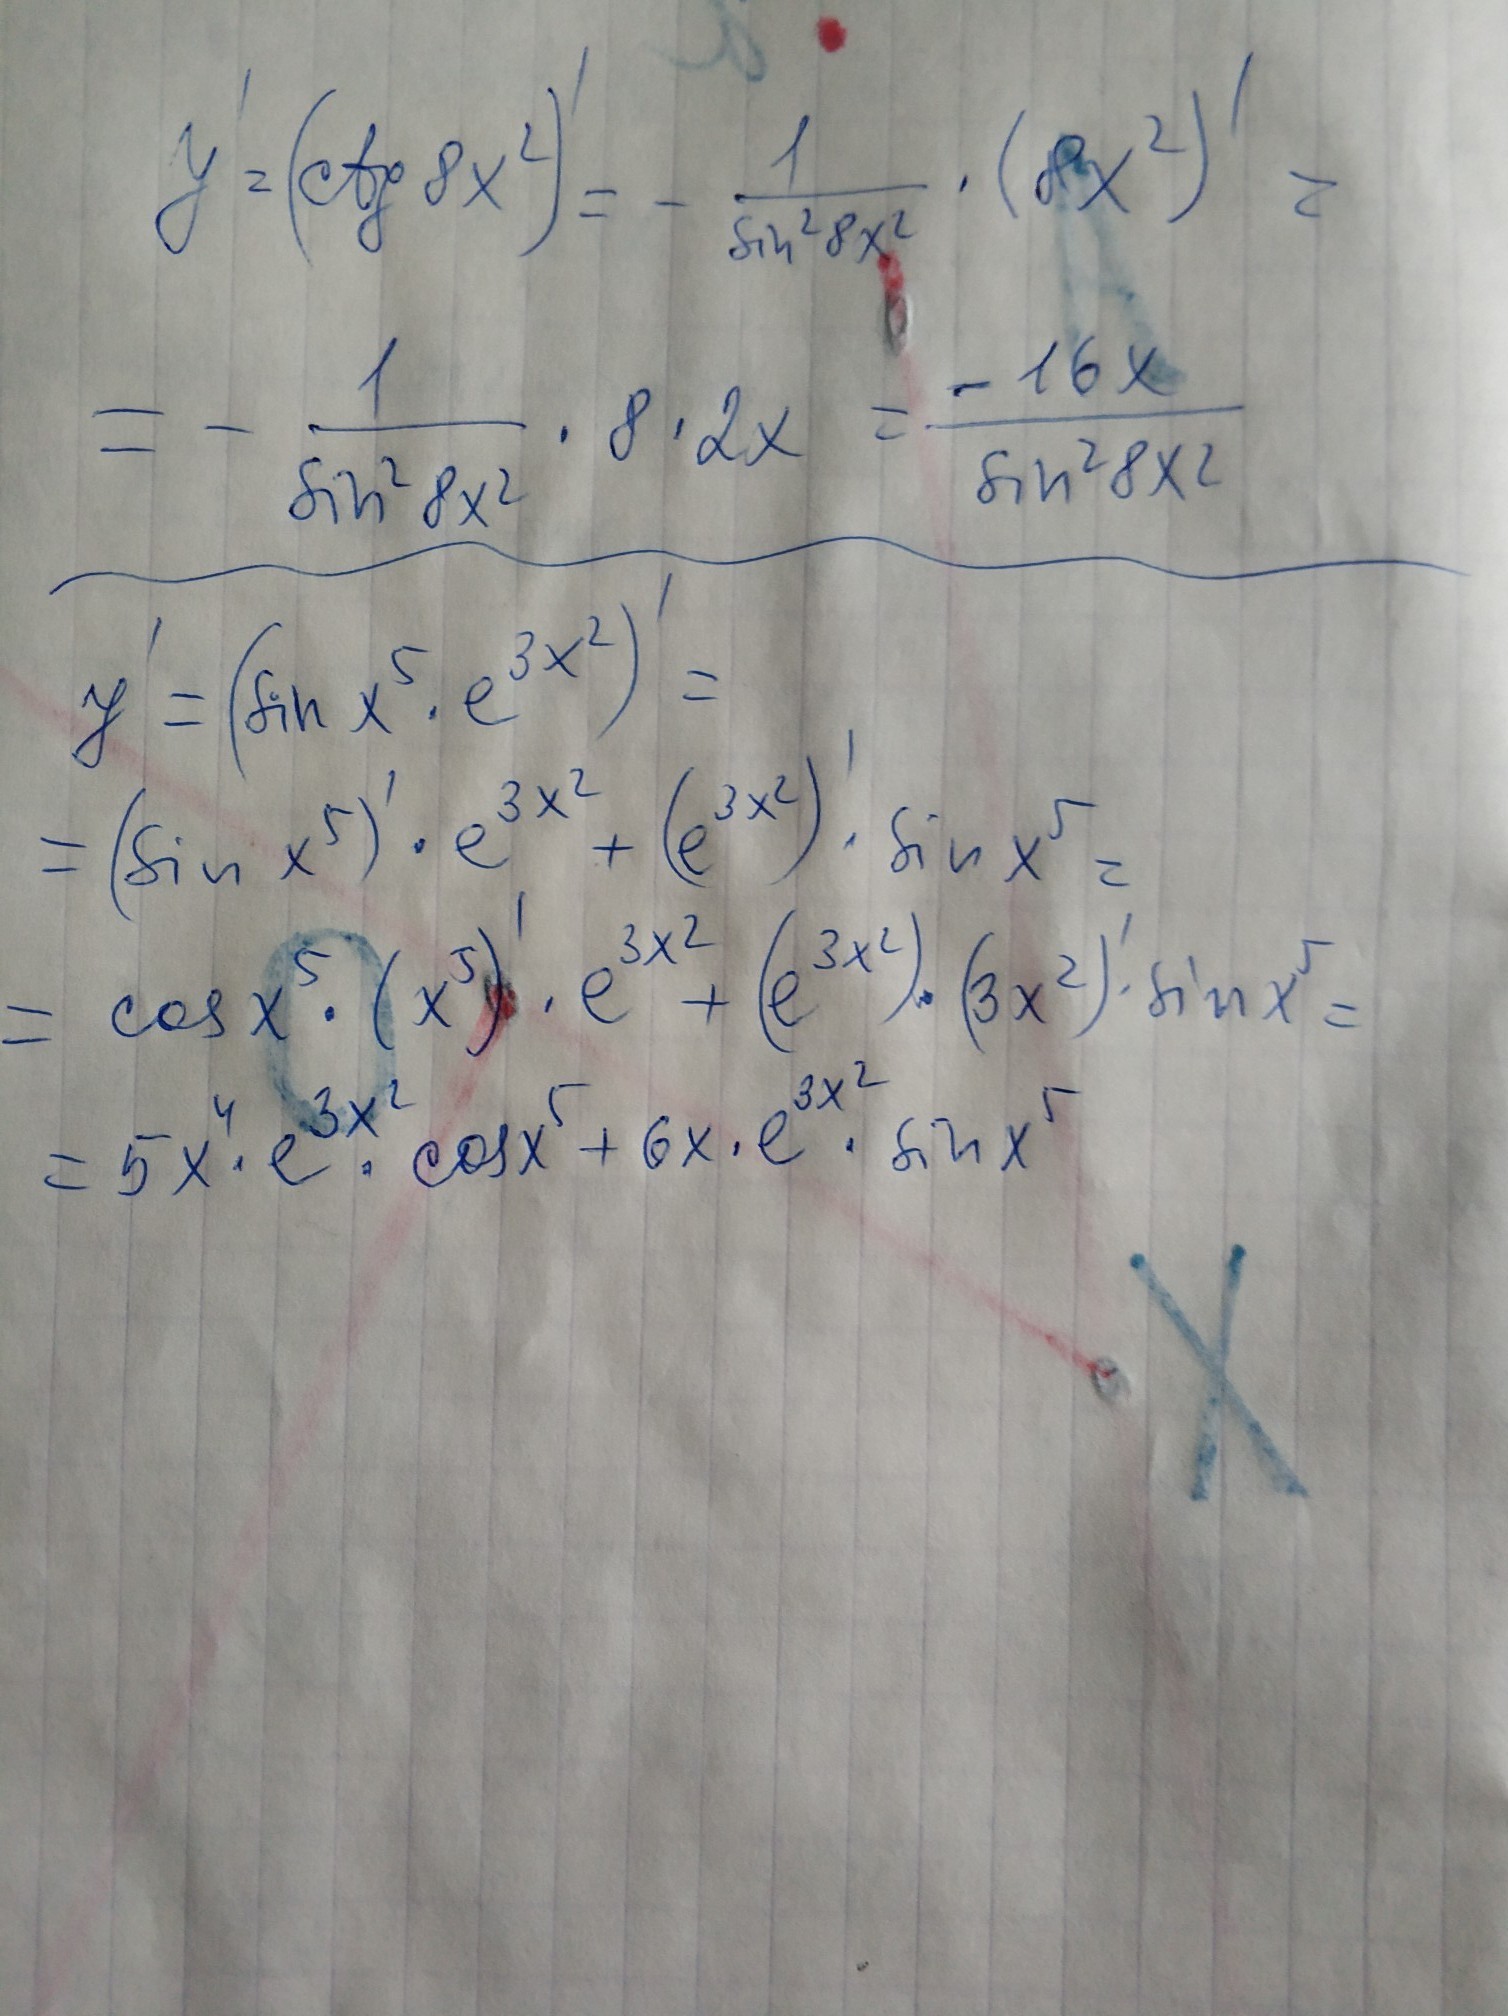 y' = (ctg 8x²)' = - 1/sin²8x² · (8x²)' =
= - 1/sin²8x² · 8 · 2x = -16x/sin²8x²
y' = (sin x⁵ · e^(3x²))' =
= (sin x⁵)' · e^(3x²) + (e^(3x²))' · sin x⁵ =
= cos x⁵ · (x⁵)' · e^(3x²) + (e^(3x²)) · (3x²)' · sin x⁵ =
= 5x⁴ · e^(3x²) · cos x⁵ + 6x · e^(3x²) · sin x⁵
X